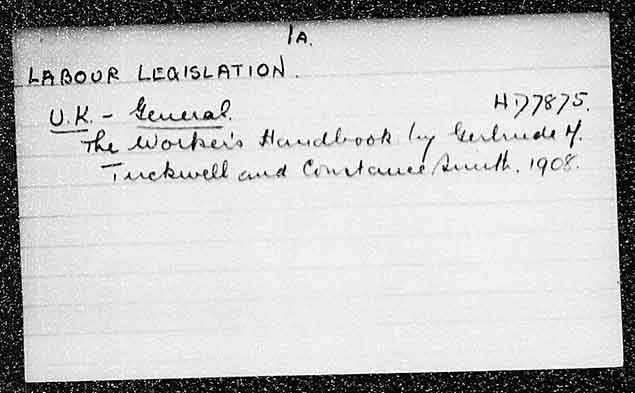 1A.
LABOUR LEGISLATION.
U.K. - General. HD7875.
The Worker's Handbook by Gertrude M.
Tuckwell and Constance Smith. 1908.